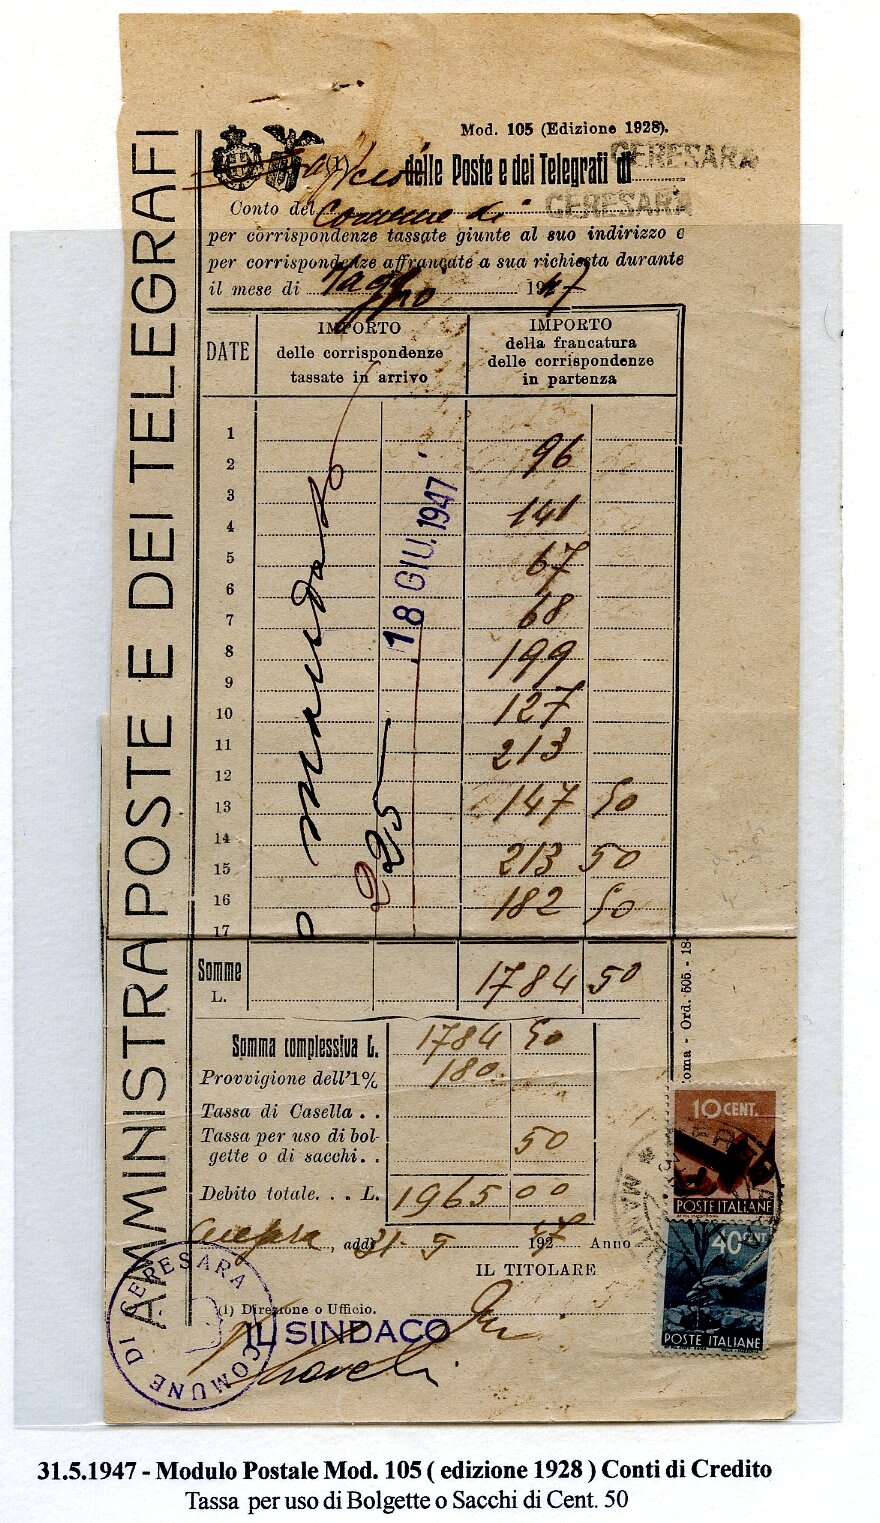 Mod. 105 (Edizione 1928).
(1) delle Poste e dei Telegrafi di CERESARA
Conto del Comune di CERESARA
per corrispondenze tassate giunte al suo indirizzo e
per corrispondenze affrancate a sua richiesta durante
il mese di Maggio 1947
AMMINISTRA POSTE E DEI TELEGRAFI
DATE
IMPORTO
delle corrispondenze
tassate in arrivo
IMPORTO
della francatura
delle corrispondenze
in partenza
1
2 96
3
4 141
5
6 67
7 68
8 199
9
10 127
11 213
12
13 147 50
14
15 213 50
16 182 50
17
mandato
225
18 GIU. 1947
Somme
L. 1784 50
Somma complessiva L. 1784 50
Provvigione dell'1% 180
Tassa di Casella . .
Tassa per uso di bol-
gette o di sacchi. . 50
Debito totale. . . L. 1965 00
, addì 31 - 5 1927 Anno
IL TITOLARE
(1) Direzione o Ufficio.
IL SINDACO
COMUNE DI CERESARA
oma - Ord. 505 - 18
10 CENT.
POSTE ITALIANE
40 CENT
POSTE ITALIANE
31.5.1947 - Modulo Postale Mod. 105 ( edizione 1928 ) Conti di Credito
Tassa per uso di Bolgette o Sacchi di Cent. 50